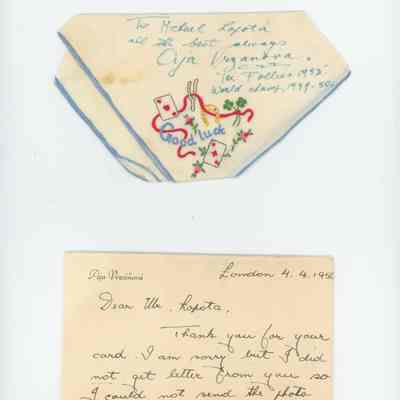 To Michael Lopota
all the best always
Aja Vrzanova.
"Ice Follies 1952"
World champ. 1949-50
Good luck
Aja Vrzáňová
London 4.4.195
Dear Mr. Lopota,
Thank you for your
card. I am sorry but I did
not get letter from your so
I could not send the photo